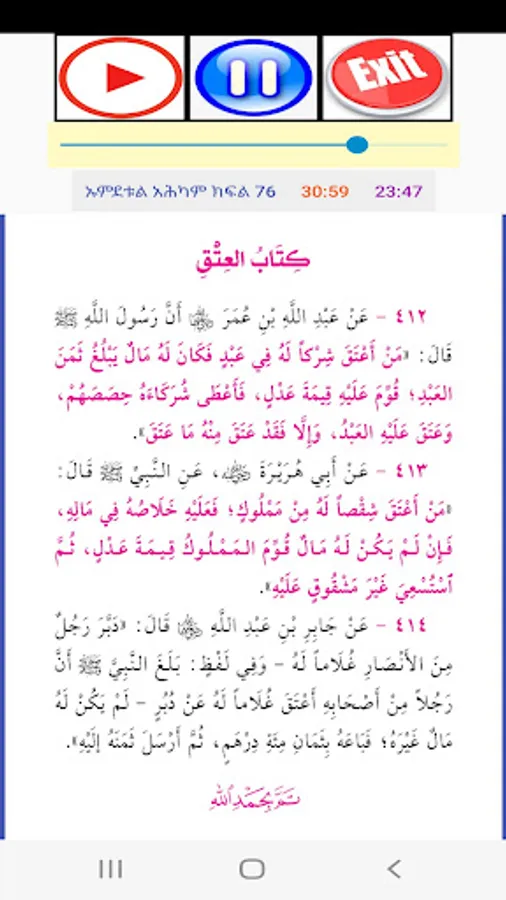 Exit
ኡምደቱል አሕካም ክፍል 76 30:59 23:47
كِتَابُ العِتْقِ
٤١٢ - عَنْ عَبْدِ اللَّهِ بْنِ عُمَرَ ﵄ أَنَّ رَسُولَ اللَّهِ ﷺ
قَالَ: «مَنْ أَعْتَقَ شِرْكاً لَهُ فِي عَبْدٍ فَكَانَ لَهُ مَالٌ يَبْلُغُ ثَمَنَ
العَبْدِ؛ قُوِّمَ عَلَيْهِ قِيمَةَ عَدْلٍ، فَأَعْطَى شُرَكَاءَهُ حِصَصَهُمْ،
وَعَتَقَ عَلَيْهِ العَبْدُ، وَإِلَّا فَقَدْ عَتَقَ مِنْهُ مَا عَتَقَ».
٤١٣ - عَنْ أَبِي هُرَيْرَةَ ﵁، عَنِ النَّبِيِّ ﷺ قَالَ:
«مَنْ أَعْتَقَ شِقْصاً لَهُ مِنْ مَمْلُوكٍ؛ فَعَلَيْهِ خَلَاصُهُ فِي مَالِهِ،
فَإِنْ لَمْ يَكُنْ لَهُ مَالٌ قُوِّمَ المَمْلُوكُ قِيمَةَ عَدْلٍ، ثُمَّ
ٱسْتُسْعِيَ غَيْرَ مَشْقُوقٍ عَلَيْهِ».
٤١٤ - عَنْ جَابِرِ بْنِ عَبْدِ اللَّهِ ﵄ قَالَ: «دَبَّرَ رَجُلٌ
مِنَ الأَنْصَارِ غُلَاماً لَهُ - وَفِي لَفْظٍ: بَلَغَ النَّبِيَّ ﷺ أَنَّ
رَجُلاً مِنْ أَصْحَابِهِ أَعْتَقَ غُلَاماً لَهُ عَنْ دُبُرٍ - لَمْ يَكُنْ لَهُ
مَالٌ غَيْرَهُ؛ فَبَاعَهُ بِثَمَانِ مِئَةِ دِرْهَمٍ، ثُمَّ أَرْسَلَ ثَمَنَهُ إِلَيْهِ».
تَمَّ بِحَمْدِ ٱللَّهِ